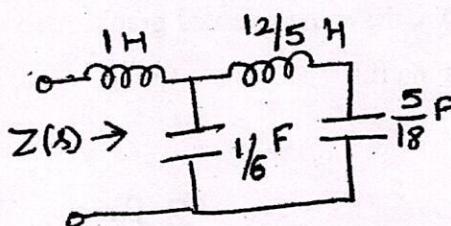 1H 12/5 H
Z(s) → 1/6 F 5/18 F